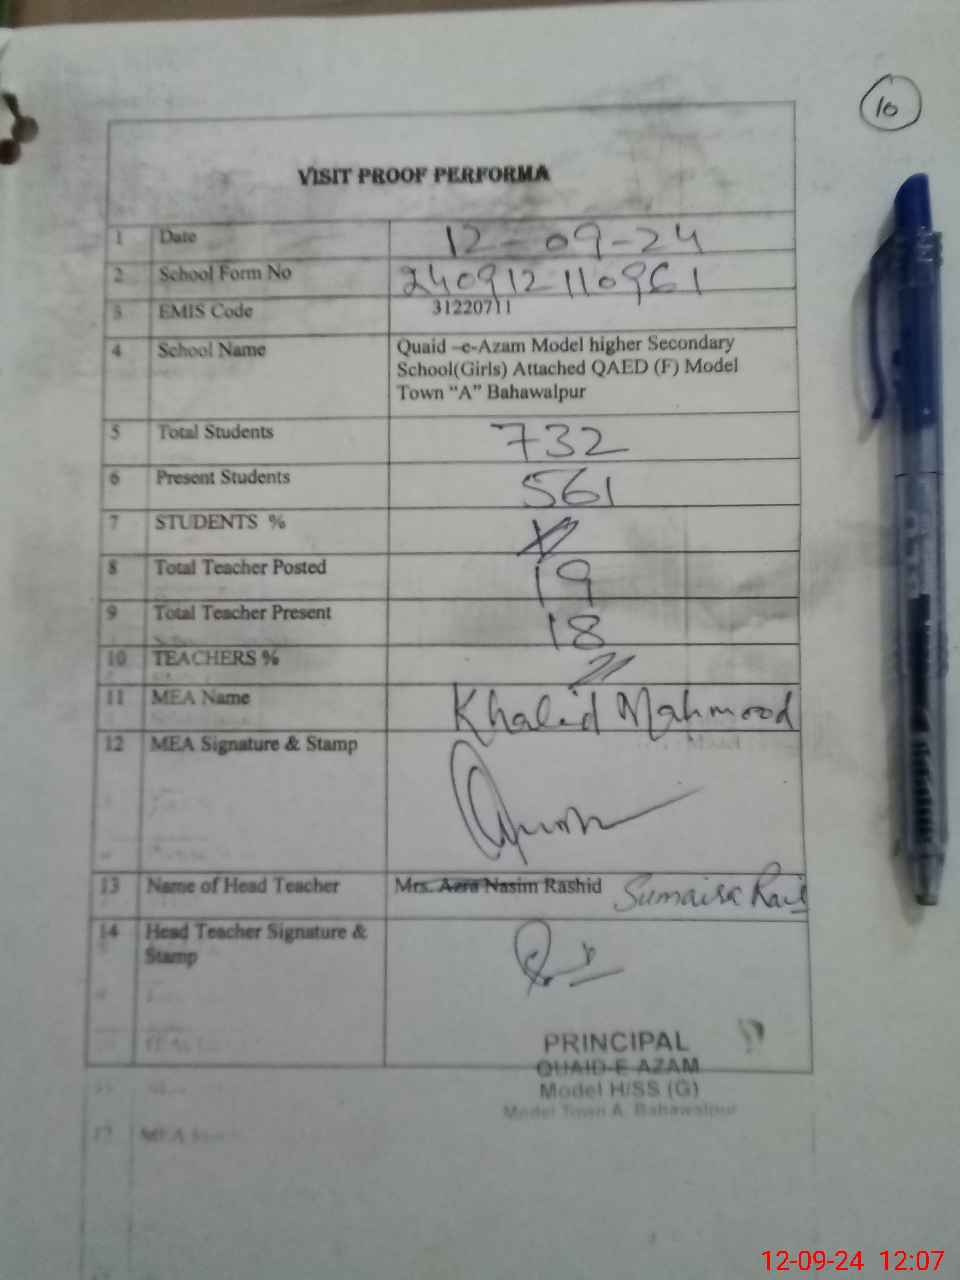 10
VISIT PROOF PERFORMA
1 Date 12-09-24
2 School Form No 240912110961
3 EMIS Code 31220711
4 School Name Quaid –e-Azam Model higher Secondary
School(Girls) Attached QAED (F) Model
Town “A” Bahawalpur
5 Total Students 732
6 Present Students 561
7 STUDENTS %
8 Total Teacher Posted 19
9 Total Teacher Present 18
10 TEACHERS %
11 MEA Name Khalid Mahmood
12 MEA Signature & Stamp
13 Name of Head Teacher Mrs. Azra Nasim Rashid Sumaira
14 Head Teacher Signature &
Stamp
PRINCIPAL
QUAID-E-AZAM
Model H/SS (G)
Model Town A. Bahawalpur
17 MEA
12-09-24 12:07